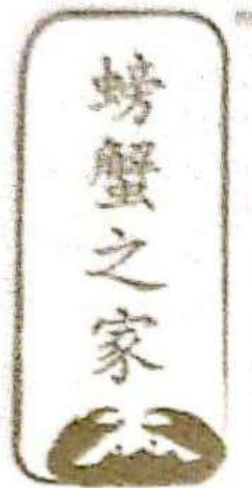 螃蟹之家